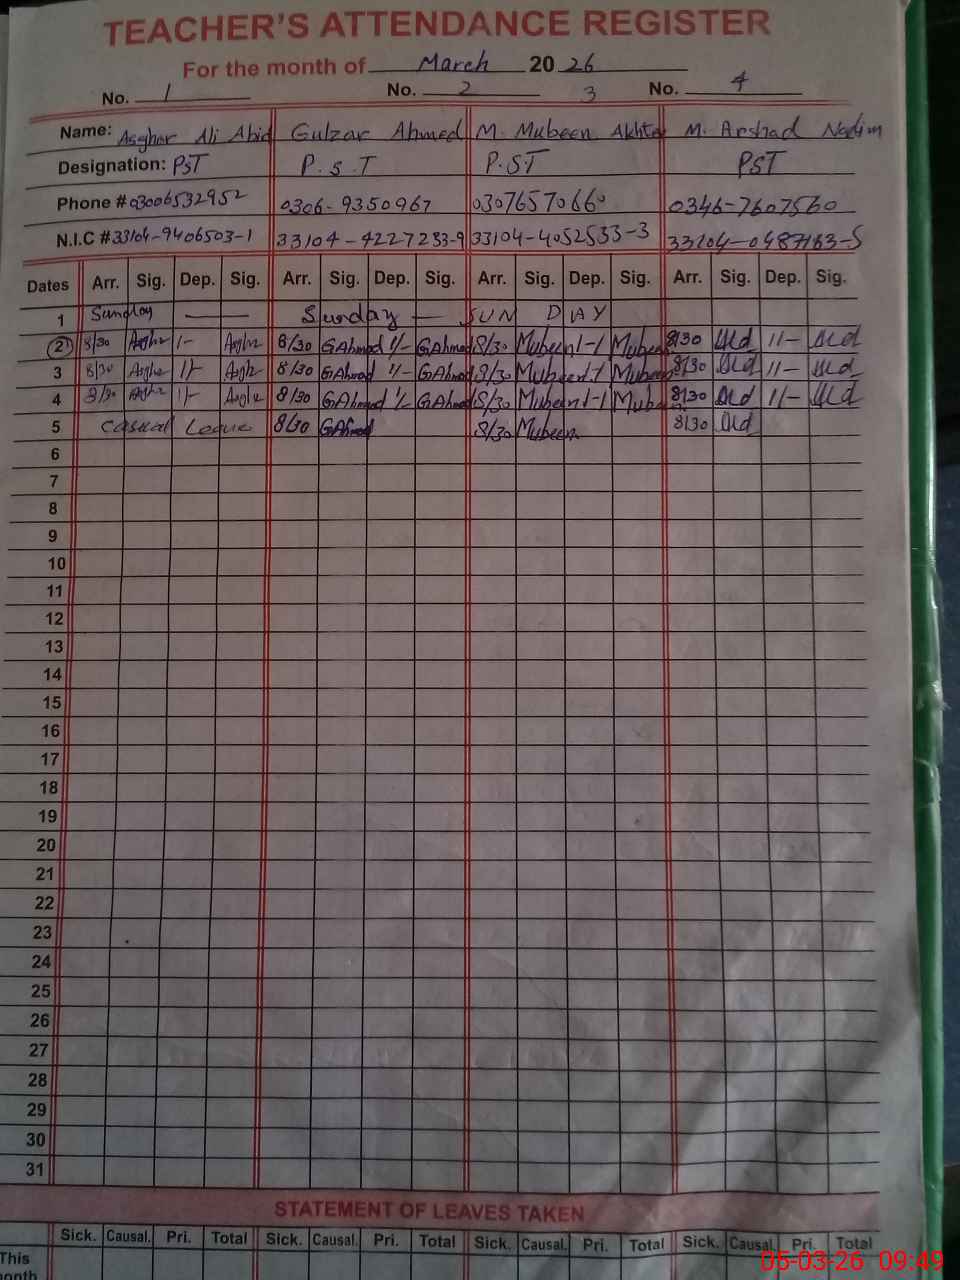 TEACHER'S ATTENDANCE REGISTER
For the month of March 20 26
No. 1 No. 2 3 No. 4
Name: Asghar Ali Abid Gulzar Ahmed M. Mubeen Akhtar M. Arshad Nadim
Designation: PST P.S.T P.ST PST
Phone # 03006532952 0306-9350967 03076570660 0346-7607560
N.I.C # 33104-9406503-1 33104-4227283-9 33104-4052533-3 33104-0487163-5
Dates Arr. Sig. Dep. Sig. Arr. Sig. Dep. Sig. Arr. Sig. Dep. Sig. Arr. Sig. Dep. Sig.
1 Sunday — Sunday — SUN DAY
2 8/30 Asghr 1/- Asghr 8/30 GAhmed 1/- GAhmed 8/30 Mubeen 1-/ Mubeen 8/30 1/-
3 8/30 Asghr 1/- Asghr 8/30 GAhmed 1/- GAhmed 8/30 Mubeen 1-/ Mubeen 8/30 1/-
4 8/30 Asghr 1/- Asghr 8/30 GAhmed 1/- GAhmed 8/30 Mubeen 1-/ Mubeen 8/30 1/-
5 Casual Leave 8/30 GAhmed 8/30 Mubeen 8/30
6
7
8
9
10
11
12
13
14
15
16
17
18
19
20
21
22
23
24
25
26
27
28
29
30
31
STATEMENT OF LEAVES TAKEN
Sick. Causal. Pri. Total Sick. Causal. Pri. Total Sick. Causal. Pri. Total Sick. Causal. Pri. Total
This
month
05-03-26 09:49